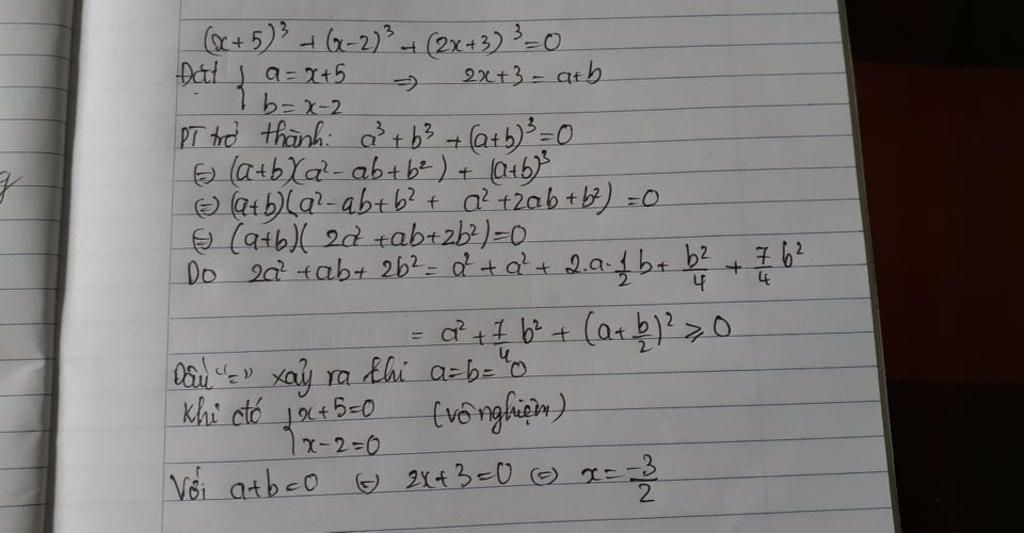 (x+5)³ + (x-2)³ + (2x+3)³ = 0
Đặt { a = x+5 ⇒ 2x+3 = a+b
{ b = x-2
PT trở thành: a³ + b³ + (a+b)³ = 0
⇔ (a+b)(a² - ab + b²) + (a+b)³
⇔ (a+b)(a² - ab + b² + a² + 2ab + b²) = 0
⇔ (a+b)(2a² + ab + 2b²) = 0
Do 2a² + ab + 2b² = a² + a² + 2.a.1/2 b + b²/4 + 7/4 b²
= a² + 7/4 b² + (a + b/2)² ⩾ 0
Dấu "=" xảy ra khi a=b=0
Khi đó { x+5=0 (vô nghiệm)
{ x-2=0
Với a+b=0 ⇔ 2x+3=0 ⇔ x = -3/2